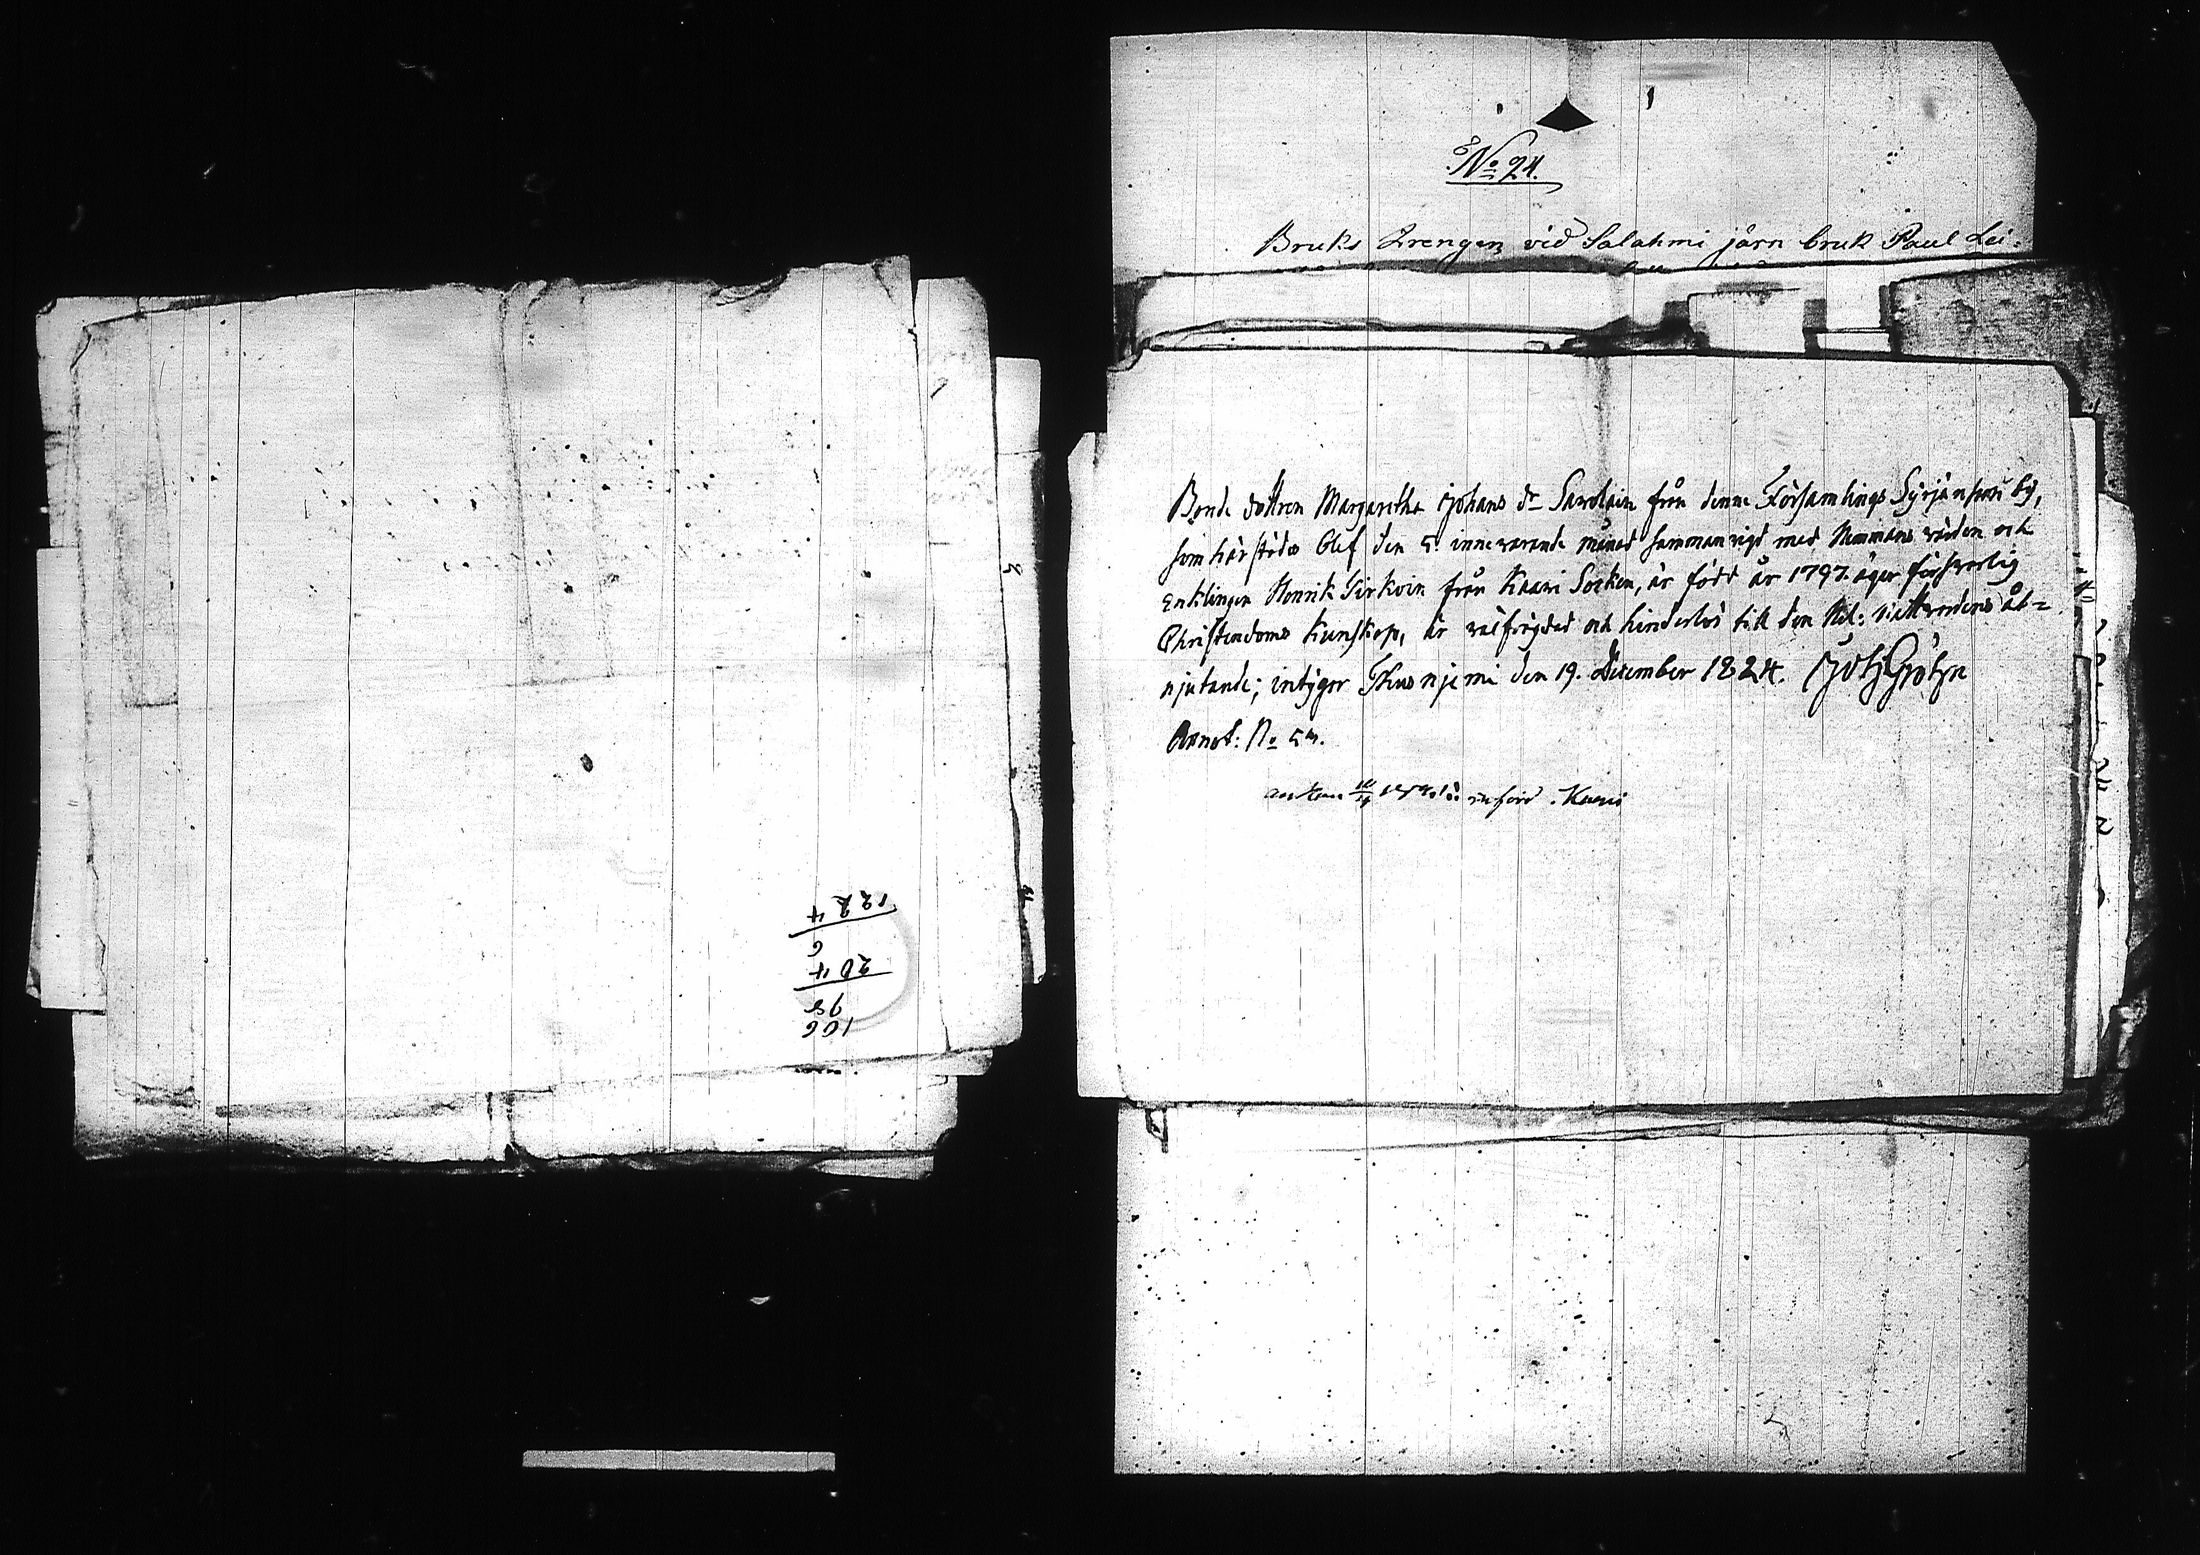 No 24.
Bruks Drengen vid Salahmi järn bruk Paul Lei-
Bonde dottren Margaretha Johans dr Savolain från denne Församlings Syrjänperi by,
som härstädes blef den 5. innevarande månad sammanvigd med Nemmans
Enklingen Henrik Sirkoin från Kaavi Socken, är född år 1797. äger försvarlig
Christendoms Kunskap, är välfrägdad och hinderlös till den Hel: Nattvardens åt=
njutande; intygar Thusnjemi den 19. December 1824.
Annot: No
Kaavi
106
98
204
6
1224